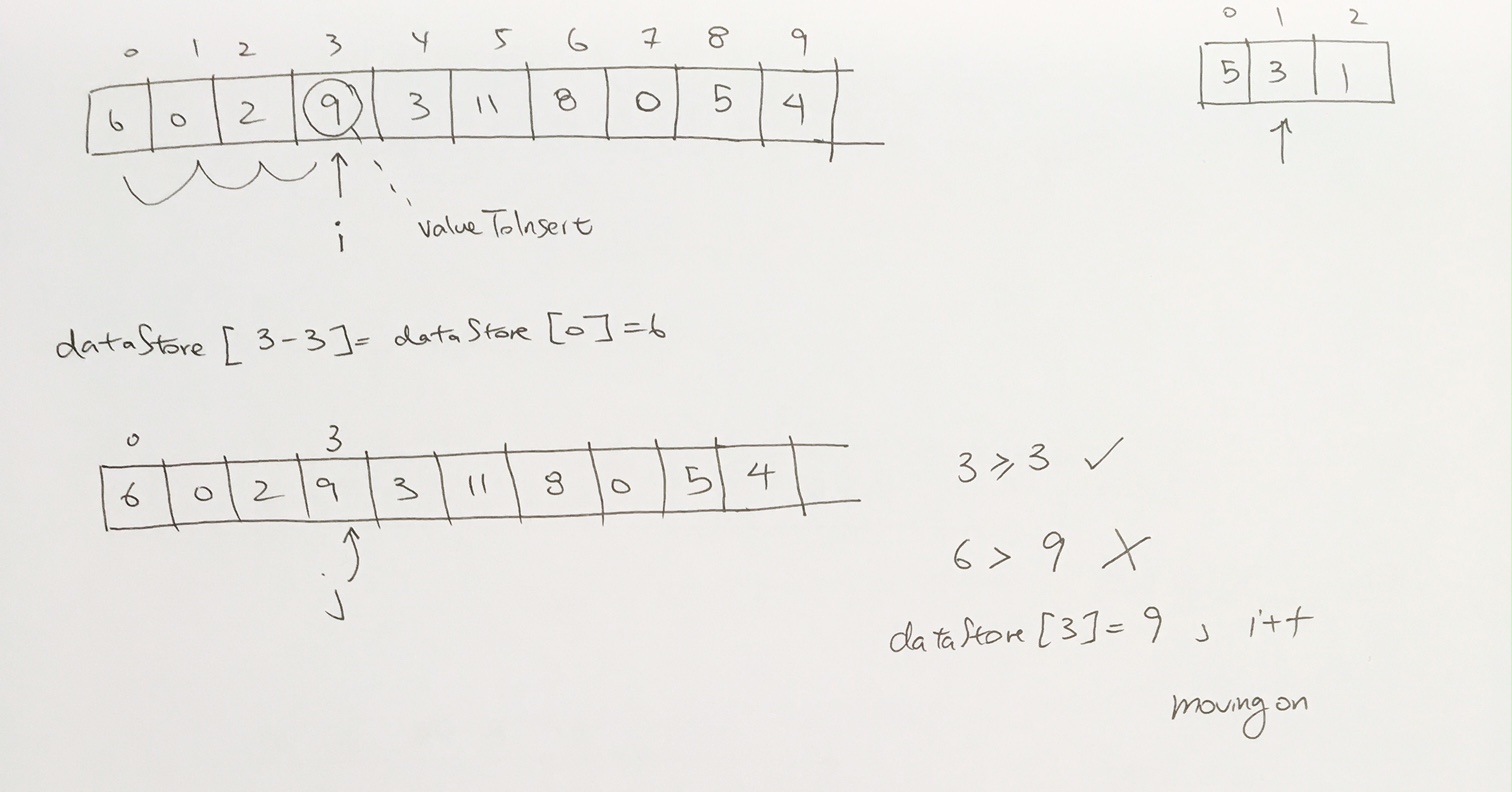 0 1 2 3 4 5 6 7 8 9
6 0 2 9 3 11 8 0 5 4
i
valueToInsert
0 1 2
5 3 1
dataStore [ 3-3]= dataStore [0] =6
0 3
6 0 2 9 3 11 8 0 5 4
j
3 ⩾ 3 ✓
6 > 9 X
dataStore [3]= 9 , i++
moving on